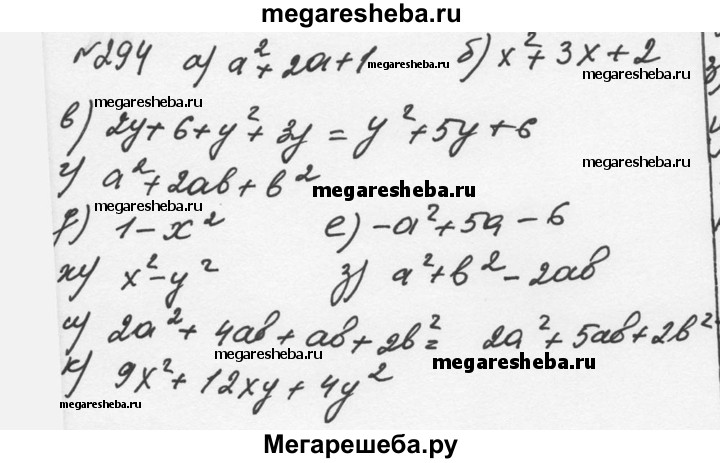 megaresheba.ru
№294 а) a²+2a+1 megaresheba.ru б) x²+3x+2
megaresheba.ru
megaresheba.ru
в) 2y+6+y²+3y = y²+5y+6
г) a²+2ab+b² megaresheba.ru
megaresheba.ru
д) 1-x² е) -a²+5a-6
ж) x²-y² з) a²+b²-2ab
и) 2a²+4ab+ab+2b²= 2a²+5ab+2b²
megaresheba.ru
megaresheba.ru
к) 9x²+12xy+4y²
megaresheba.ru
Мегарешеба.ру